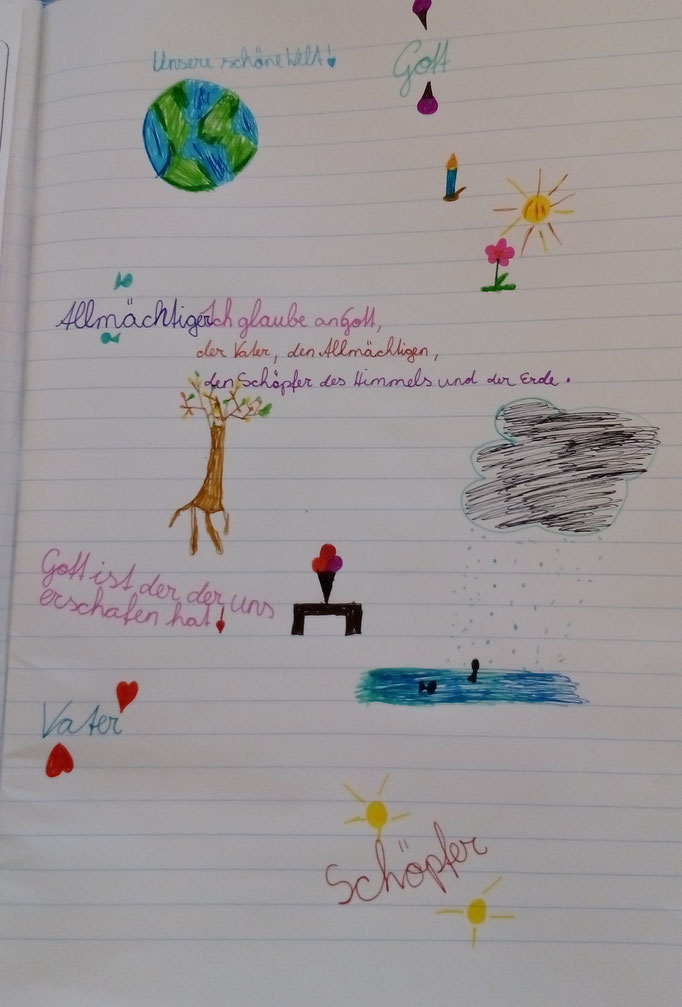 Unsere schöne Welt!
Gott
Allmächtiger
Ich glaube an Gott,
der Vater, den Allmächtigen,
den Schöpfer des Himmels und der Erde.
Gott ist der der uns
erschafen hat!
Vater
Schöpfer